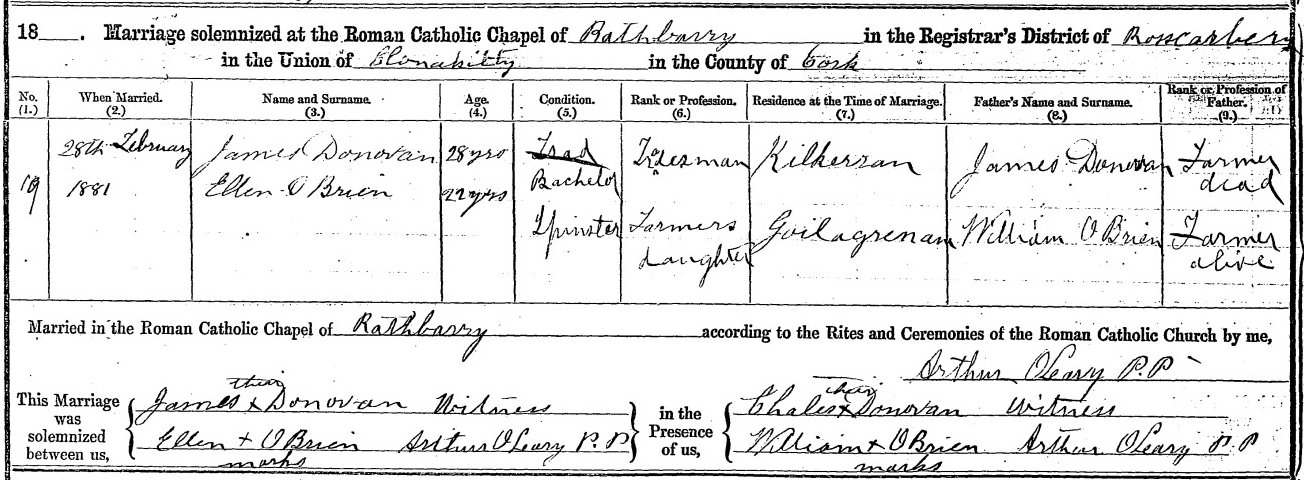 18___. Marriage solemnized at the Roman Catholic Chapel of Rathbarry in the Registrar's District of Rosscarbery
in the Union of Clonakilty in the County of Cork
No. When Married. Name and Surname. Age. Condition. Rank or Profession. Residence at the Time of Marriage. Father's Name and Surname. Rank or Profession of Father.
(1.) (2.) (3.) (4.) (5.) (6.) (7.) (8.) (9.)
19 28th February 1881 James Donovan 28 yrs Trad Bachelor Tradesman Kilkerran James Donovan Farmer dead
Ellen O Brien 22 yrs Spinster Farmers daughter Goilagrenam William O Brien Farmer alive
Married in the Roman Catholic Chapel of Rathbarry according to the Rites and Ceremonies of the Roman Catholic Church by me,
Arthur O Leary P.P
This Marriage was solemnized between us,
their
James x Donovan Witness
Ellen + O Brien Arthur O Leary P.P
marks
in the Presence of us,
their
Chales x Donovan Witness
William + O Brien Arthur O Leary P P
marks